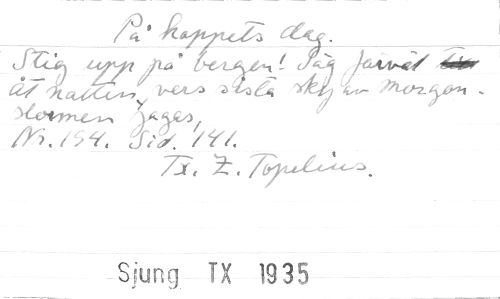 På hoppets dag.
Stig upp på bergen! Säg farväl
åt natten, vars sista sky av morgon-
stormen jagas,
Nr. 154. Sid. 141.
Tx. Z. Topelius.
Sjung TX 1935